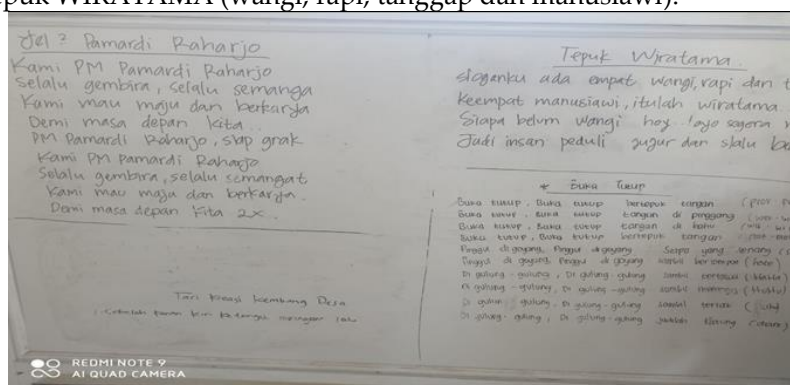 puk WIRATAMA (wangi, rapi, tanggap dan manusiawi).
Jel 2 Pamardi Raharjo
Kami PM Pamardi Raharjo
Selalu gembira, selalu semanga
Kami mau maju dan berkarya
Demi masa depan kita..
PM Pamardi Raharjo, siap grak
Kami PM Pamardi Raharjo
Selalu gembira, selalu semangat
Kami mau maju dan berkarya.
Demi masa depan kita 2x.
Tari Kreasi Kembang Desa
Tepuk Wiratama
sloganku ada empat wangi, rapi dan t
Keempat manusiawi, itulah wiratama
Siapa belum wangi hoy. Ayo segera
Jadi insan peduli jujur dan slalu
* Buka Tutup
Buka tutup, Buka tutup bertepuk tangan (prok
Buka tutup, Buka tutup tangan di pinggang
Buka tutup, Buka tutup tangan di bahu
Buka tutup, Buka tutup bertepuk tangan
Pinggul di goyang, Pinggul di goyang Siapa yang senang
Pinggul di goyang, Pinggul di goyang sambil
Di gulung - gulung, Di gulung - gulung sambil
Di gulung - gulung, Di gulung - gulung sambil
Di gulung - gulung, Di gulung - gulung sambil
Di gulung - gulung, Di gulung - gulung
REDMI NOTE 9
AI QUAD CAMERA